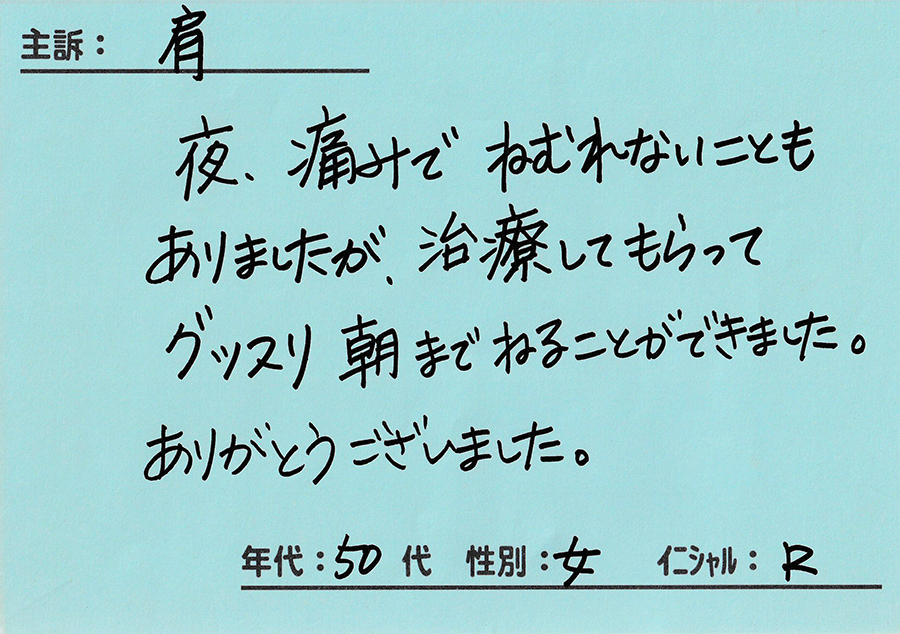 主訴： 肩
夜、痛みで ねむれないことも
ありましたが、治療してもらって
グッスリ 朝までねることができました。
ありがとうございました。
年代：50代 性別：女 イニシャル：R